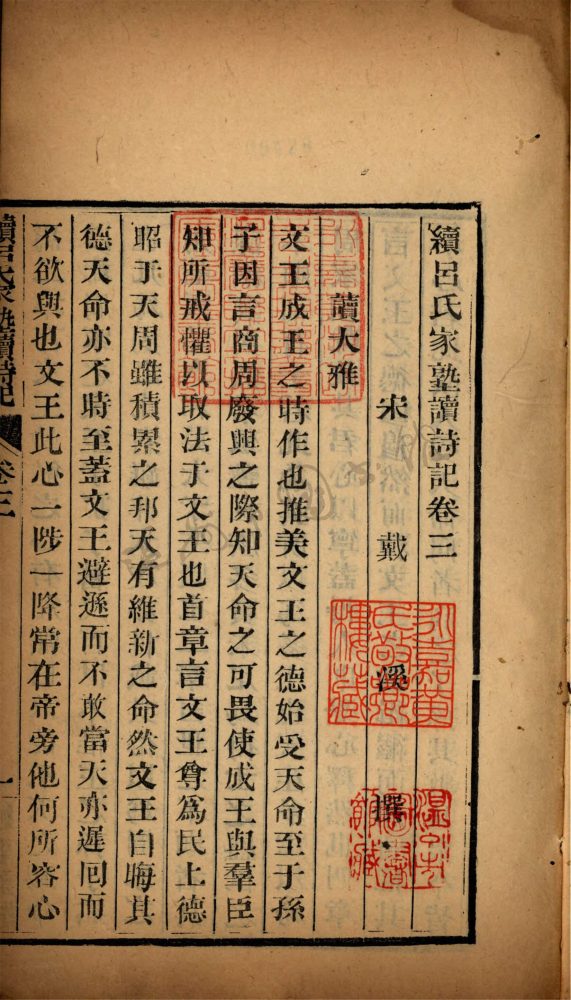 續呂氏家塾讀詩記卷三
宋 戴 溪 撰
讀大雅
文王成王之時作也推美文王之德始受天命至于孫
子因言商周廢興之際知天命之可畏使成王與羣臣
知所戒懼以取法于文王也首章言文王尊爲民上德
昭于天周雖積累之邦天有維新之命然文王自晦其
德天命亦不時至蓋文王避遜而不敢當天亦遲囘而
不欲與也文王此心一陟一降常在帝旁他何所容心
續呂氏家塾讀詩記
卷三
一
永嘉黃
氏敬鄉
樓藏